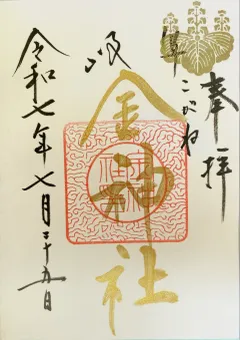 奉拝
こがね
岐阜
金神社
令和七年七月二十五日